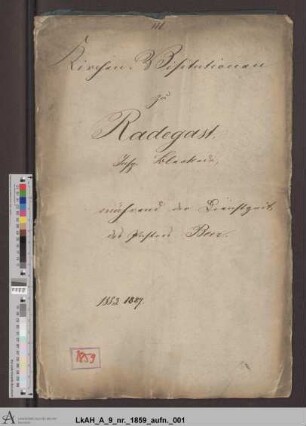 Kirchen-Visitationen
zu
Radegast.
während der Dienstzeit
des Pastors
1853. 1857.
1859
LkAH_A_9_nr._1859_aufn._001